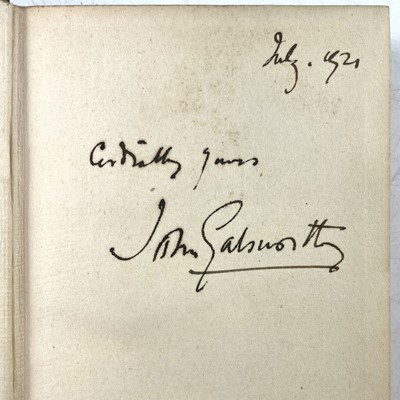 July. 1921
Cordially yours
John Galsworthy